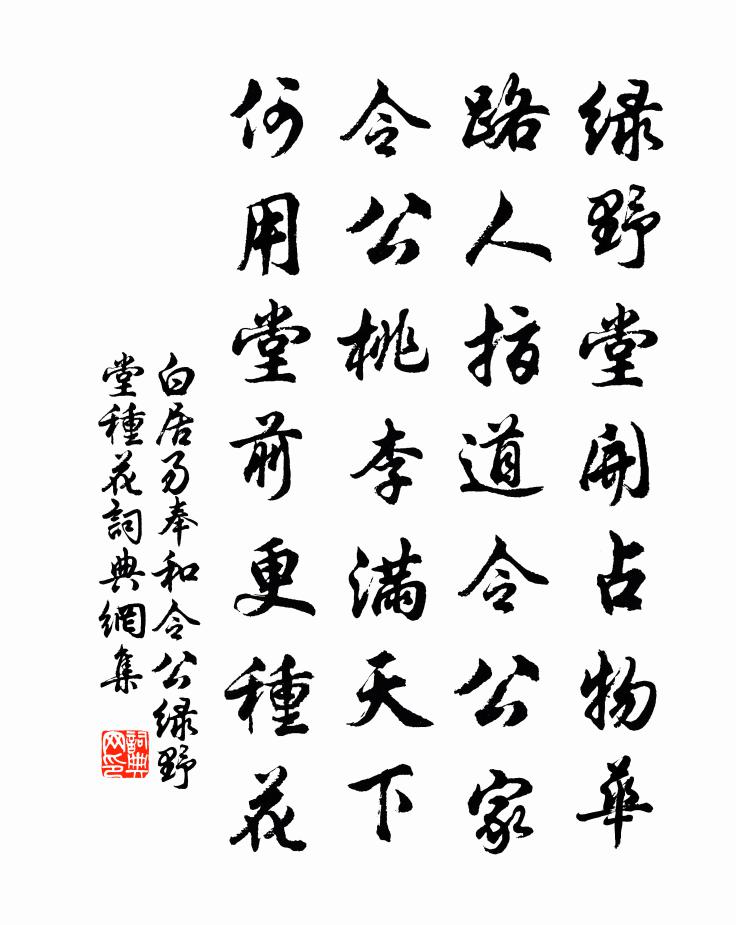 綠野堂開占物華
路人指道令公家
令公桃李滿天下
何用堂前更種花
白居易奉和令公綠野
堂種花詞典網集
詞典
网印